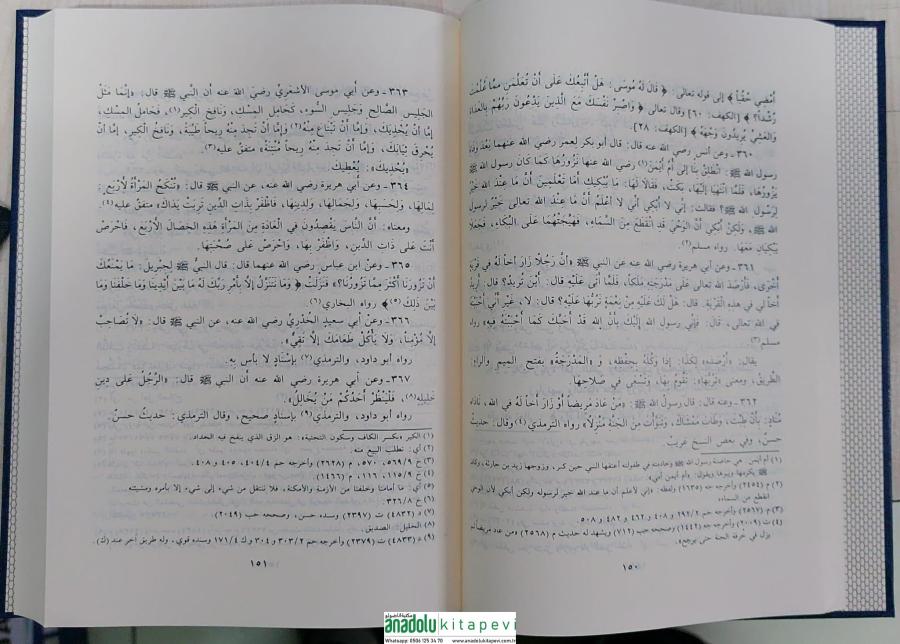 أَمْضِيَ حُقُباً﴾ إلى قوله تعالى: ﴿قَالَ لَهُ مُوسَى: هَلْ أَتَّبِعُكَ عَلَى أَنْ تُعَلِّمَنِ مِمَّا عُلِّمْتَ
رُشْداً؟﴾ [الكهف: ٦٠] وقال تعالى ﴿وَاصْبِرْ نَفْسَكَ مَعَ الَّذِينَ يَدْعُونَ رَبَّهُمْ بِالغَدَاةِ
وَالعَشِيِّ يُرِيدُونَ وَجْهَهُ﴾ [الكهف: ٢٨].
٣٦٠ ـ وعن أنس رضي الله عنه قال: قال أبو بكر لِعمرَ رضي الله عنهما بَعْدَ وَفَاةِ
رسول الله ﷺ: انْطَلِقْ بِنَا إِلى أُمِّ أَيْمَنَ(١) رضي الله عنها نَزُورُهَا كَمَا كانَ رسول الله ﷺ
يَزُورُهَا، فَلَمَّا انْتَهَيَا إِلَيْهَا، بَكَتْ، فَقَالا لَهَا: مَا يُبْكِيكِ أَمَا تَعْلَمِينَ أَنَّ مَا عِنْدَ الله خَيْرٌ
لِرَسُولِ الله ﷺ؟ فقالت: إِنِّي لا أَبْكِي أَنِّي لا أَعْلَمُ أَنَّ مَا عِنْدَ الله تعالى خَيْرٌ لرسولِ
الله ﷺ، وَلَكِنْ أَبْكِي أَنَّ الوَحْيَ قَدِ انْقَطَعَ مِنَ السَّمَاءِ، فَهَيَّجَتْهُمَا عَلَى البُكَاءِ، فَجَعَلا
يَبْكِيَانِ مَعَهَا. رواه مسلم(٢).
٣٦١ ـ وعن أبي هريرة رضي الله عنه عن النبي ﷺ «أَنَّ رَجُلاً زَارَ أَخاً لَهُ في قَرْيَةٍ
أُخْرَى، فَأَرْصَدَ الله تعالى عَلَى مَدْرَجَتِهِ مَلَكاً، فَلَمَّا أَتَى عَلَيْهِ قال: أَيْنَ تُرِيدُ؟ قال: أُرِيدُ
أَخاً لي في هذِهِ القَرْيَةِ. قال: هَلْ لَكَ عَلَيْهِ مِنْ نِعْمَةٍ تَرُبُّهَا عَلَيْهِ؟ قال: لا، غَيْرَ أَنِّي أَحْبَبْتُهُ
في الله تعالى، قال: فَإِنِّي رسول الله إِلَيْكَ بِأَنَّ الله قَدْ أَحَبَّكَ كَمَا أَحْبَبْتَهُ فِيهِ» رواه
مسلم(٣).
يقال: «أَرْصَدَه» لِكَذا: إذا وَكَّلَهُ بِحِفْظِهِ، وَ «المَدْرَجَةُ» بفتحِ الميمِ والراءِ:
الطَّرِيقُ، ومعنى «تَرُبُّهَا»: تَقُومُ بِهَا، وَتَسْعَى في صَلاحِهَا.
٣٦٢ ـ وعنه قال: قال رسولُ الله ﷺ: «مَنْ عَادَ مَرِيضاً أَوْ زَارَ أَخاً لَهُ في الله، نَادَاهُ
مُنَادٍ: بِأَنْ طِبْتَ، وَطَابَ مَمْشَاكَ، وَتَبَوَّأْتَ مِنَ الجَنَّةِ مَنْزِلاً» رواه الترمذي(٤) وقال: حديثٌ
حسنٌ، وفي بعض النسخ غريبٌ.
(١) أم أيمن: هي حاضنة رسول الله ﷺ وخادمته في طفولته أعتقها النبي حين كبر، وزوجها زيد بن حارثة، وكان
ﷺ يكرمها ويبرها ويقول: وأم أيمن أمي».
(٢) م (٢٤٥٤) وأخرجه جه (١٦٣٥) ولفظه: «إني لأعلم أن ما عند الله خير لرسوله ولكن أبكي لأن الوحي
انقطع من السماء».
(٣) م (٢٥٦٧) وأخرجه حم ٢٩٢/٢ و ٤٠٨ و ٤٦٢ و ٤٨٢ و ٥٠٨.
(٤) ت (٢٠٠٩) وأخرجه جه (١٤٤٢) وصححه حب (٧١٢) ويشهد له حديث م (٢٥٦٨) «من عاد مريضاً لم
يزل في خرفة الجنة حتى يرجع».
١٥٠
٣٦٣ ـ وعن أبي موسى الأشعريِّ رضيَ اللهُ عنه أن النَّبي ﷺ قال: «إِنَّمَا مَثَلُ
الجَلِيسِ الصَّالِحِ وَجَلِيسِ السُّوءِ، كَحَامِلِ المِسْكِ، وَنَافِخِ الْكِيرِ(١)، فَحَامِلُ المِسْكِ،
إِمَّا أَنْ يُحْذِيَكَ، وَإِمَّا أَنْ تَبْتَاعَ مِنْهُ(٢) وَإِمَّا أَنْ تَجِدَ مِنْهُ رِيحاً طَيِّبَةً، وَنَافِخُ الْكِيرِ، إِمَّا أَنْ
يُحْرِقَ ثِيَابَكَ، وَإِمَّا أَنْ تَجِدَ مِنْهُ رِيحاً مُنْتِنَةً» متفقٌ عليه(٣).
«يُحْذِيكَ»: يُعْطِيكَ.
٣٦٤ ـ وعن أبي هريرة رضي الله عنه، عن النبي ﷺ قال: «تُنْكَحُ المَرْأَةُ لأَرْبَعٍ:
لِمَالِهَا، وَلِحَسَبِهَا، وَلِجَمَالِهَا، وَلِدِينِهَا، فَاظْفَرْ بِذَاتِ الدِّينِ تَرِبَتْ يَدَاكَ» متفق عليه(٤).
ومعناه: أَنَّ النَّاسَ يَقْصِدُونَ في الْعَادَةِ مِنَ المَرْأَةِ هذِهِ الخِصَالَ الأَرْبَعَ، فَاحْرِصْ
أَنْتَ عَلَى ذَاتِ الدِّينِ، وَاظْفَرْ بِهَا، وَاحْرِصْ عَلَى صُحْبَتِهَا.
٣٦٥ ـ وعن ابن عباس رضي الله عنهما قال: قال النبيُّ ﷺ لِجِبْرِيلَ: مَا يَمْنَعُكَ
أَنْ تَزُورَنَا أَكْثَرَ مِمَّا تَزُورُنَا؟» فَنَزَلَتْ: ﴿وَمَا نَتَنَزَّلُ إِلَّا بِأَمْرِ رَبِّكَ لَهُ مَا بَيْنَ أَيْدِينَا وَمَا خَلْفَنَا وَمَا
بَيْنَ ذلِكَ(٥)﴾ رواه البخاري(٦).
٣٦٦ ـ وعن أبي سعيدٍ الخُدْرِيِّ رضي الله عنه، عن النبي ﷺ قال: «لا تُصَاحِبْ
إِلَّا مُؤْمِناً، وَلا يَأْكُلْ طَعَامَكَ إِلَّا تَقِيٌّ».
رواه أبو داود، والترمذي(٧) بإِسْنَادٍ لا بأس بِهِ.
٣٦٧ ـ وعن أبي هريرة رضي الله عنه أن النبي ﷺ قال: «الرَّجُلُ عَلَى دِينِ
خَلِيلِهِ(٨)، فَلْيَنْظُرْ أَحَدُكُمْ مَنْ يُخَالِلُ».
رواه أبو داود، والترمذي(٩) بإسنادٍ صحيح، وقال الترمذي: حديثٌ حسنٌ.
(١) الكير «بكسر الكاف وسكون التحتية»: هو الزق الذي ينفخ فيه الحداد.
(٢) أي: تطلب البيع منه.
(٣) خ ٥٦٩/٩، ٥٧٠، م (٢٦٢٨) وأخرجه حم ٤٠٤/٤، ٤٠٥ و ٤٠٨.
(٤) خ ١١٥/٩، ١١٦، م (١٤٦٦).
(٥) أي: ما أمامنا وخلفنا من الأزمنة والأمكنة، فلا ننتقل من شيء إلى شيء إلا بأمره ومشيئته.
(٦) خ ٣٢٦/٨.
(٧) د (٤٨٣٢) ت (٢٣٩٧) وسنده حسن، وصححه حب (٢٠٤٩).
(٨) الخليل: الصديق.
(٩) د (٤٨٣٣) ت (٢٣٧٩) وأخرجه حم ٣٠٣/٢ و ٣٠٤ و ك ١٧١/٤ وسنده قوي، وله طريق آخر عند (ك).
١٥١
مكتبة اناضولو
anadolu kitapevi
Whatsapp: 0506 125 34 70 www.anadolukitapevi.com.tr